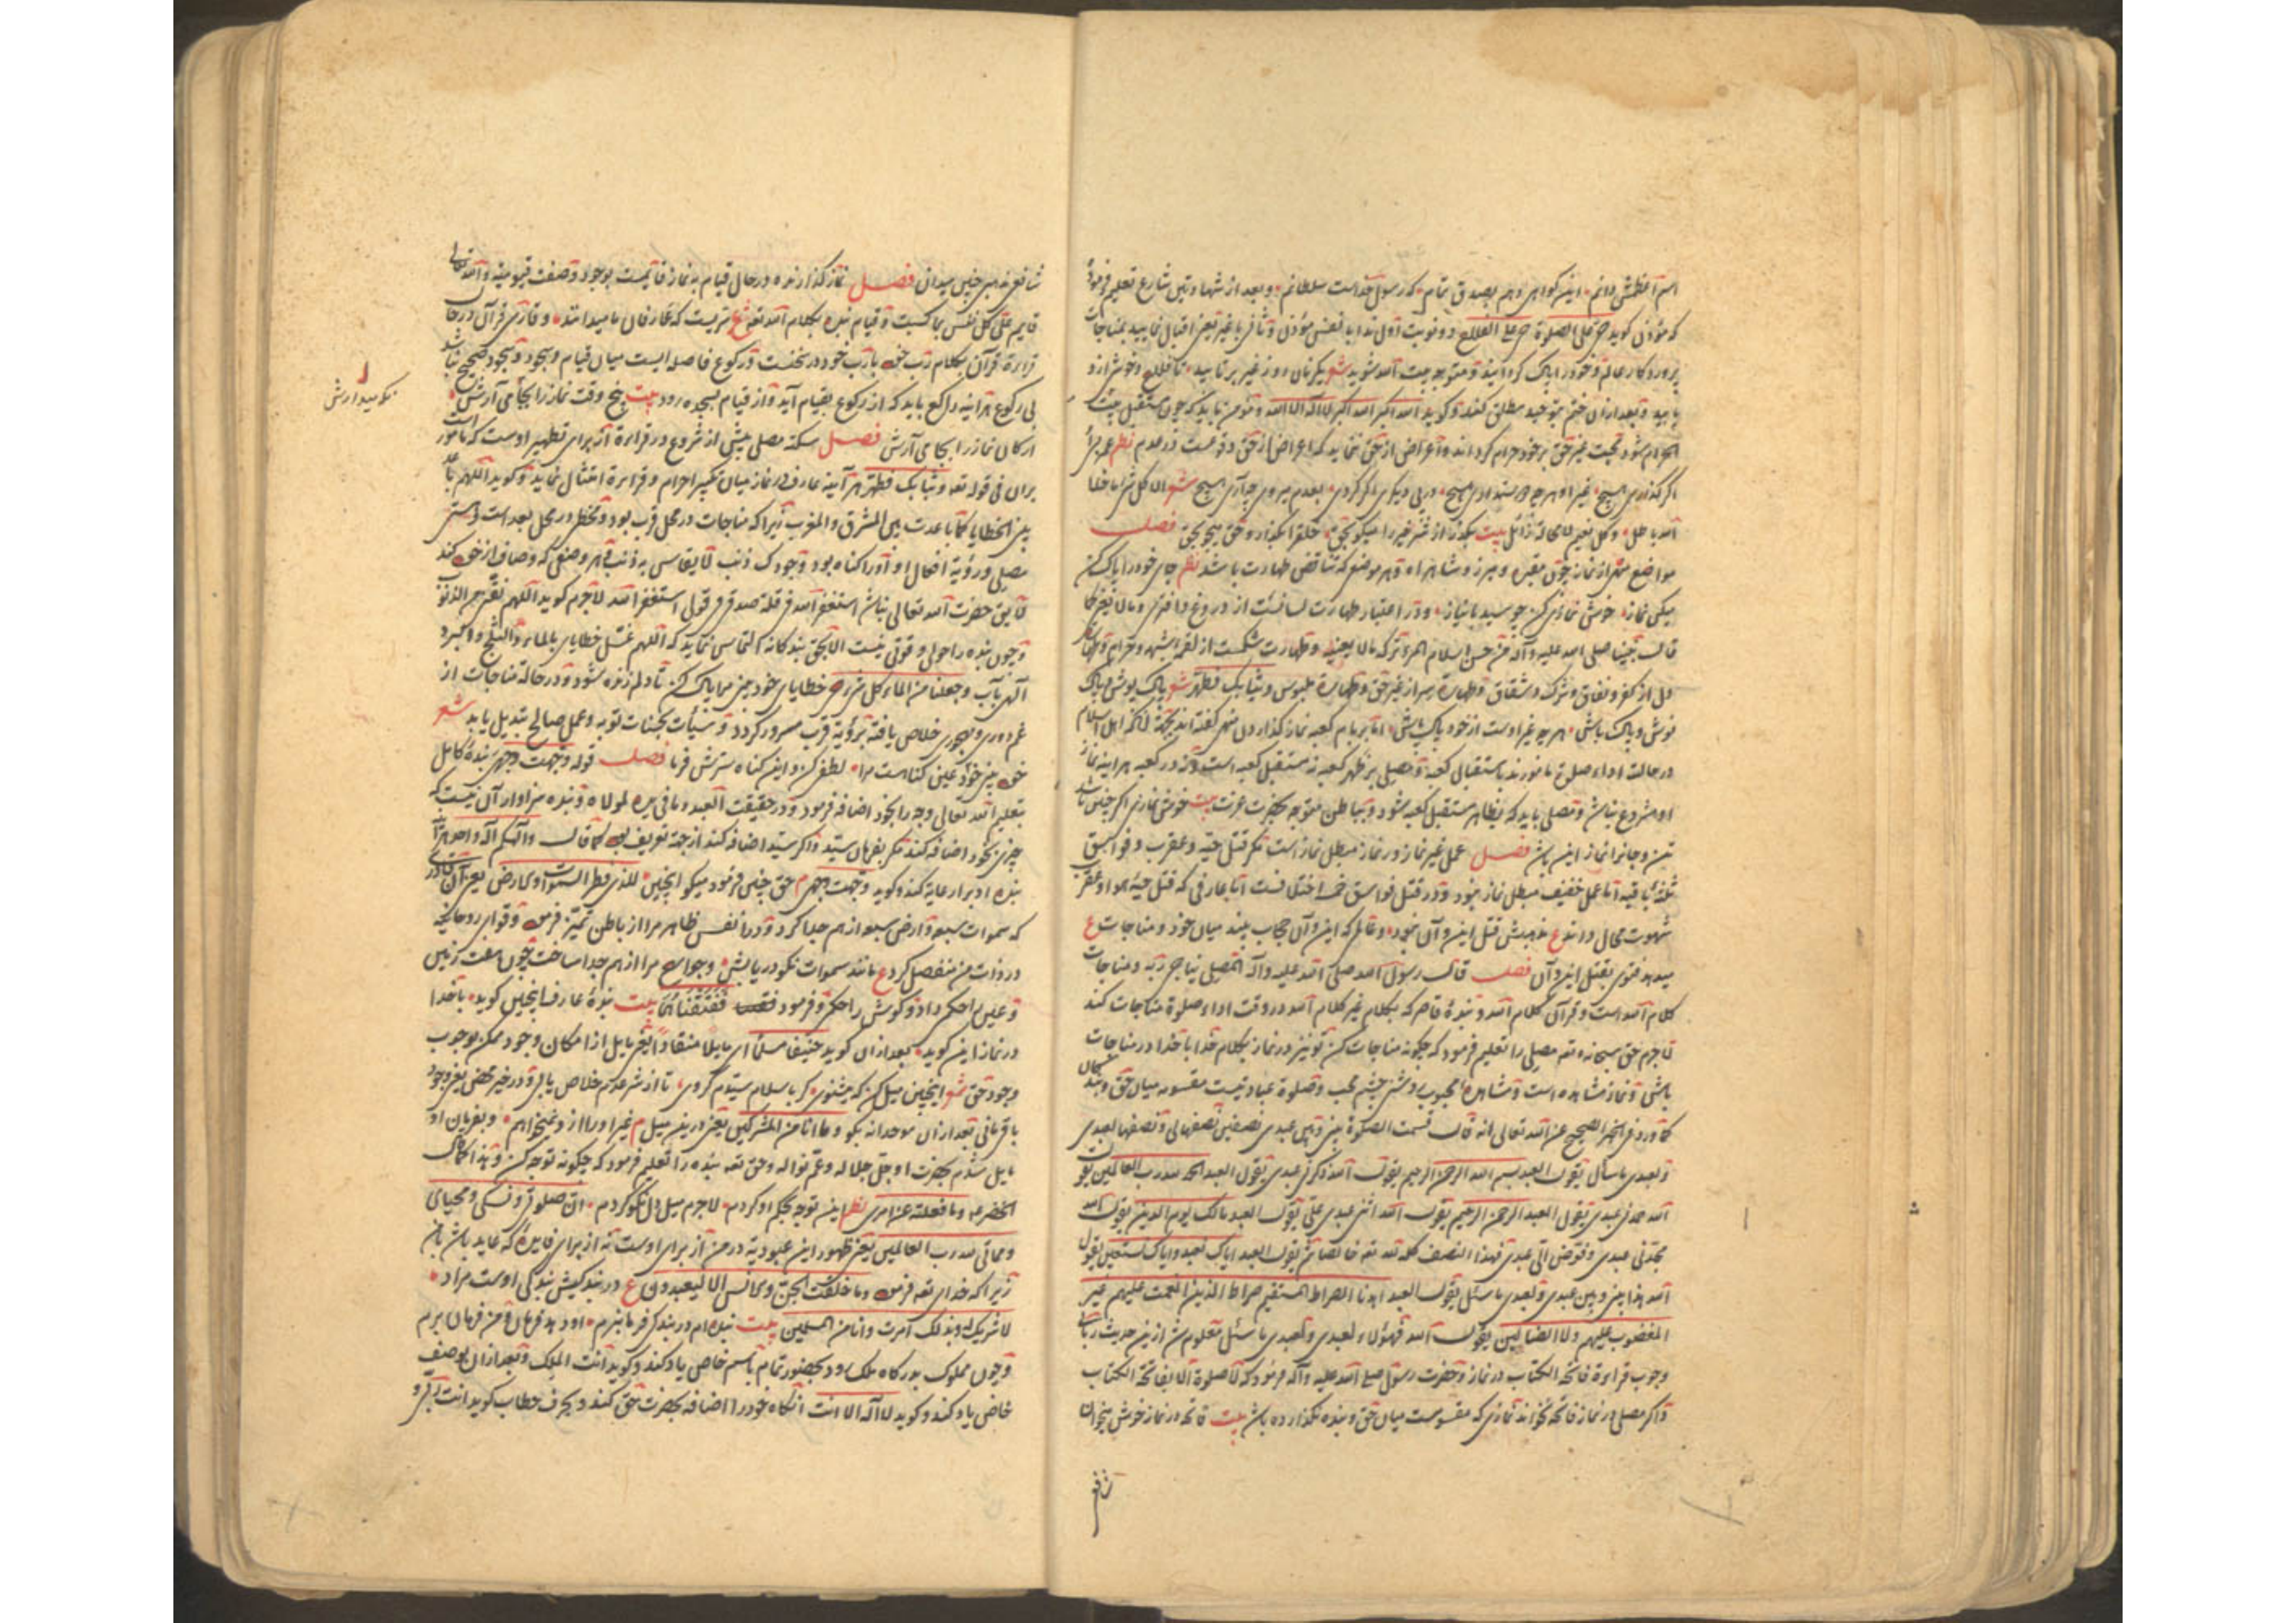 اسم اعظمش دانم این کواهی دهم بصدق تمام که رسول خداست سلطانم و بعد از شهادتین شارع تعلیم فرمود
که مؤذن کوید حی علی الصلوة حی علی الفلاح دو نوبت اول ندا با نفس مؤذن و ثانی با غیر یعنی اقبال نمایید بمناجات
پروردکار عالم و خود را پاک کردانید و متوجه بیت الله شوید شعر یکزمان رو ز غیر برتابید تا فلاح
یابید و بعد از آن ختم بتوحید مطلق کند و کوید الله اکبر الله اکبر لا اله الا الله و مؤمن باید که چون مستقبل بیت
الحرام شود محبت غیر حق بر خود حرام کرداند و اعراض از حق ننماید که اعراض از حق وقوعست در عدم نظم
اگر کذاری هیچ غیر او هرچه هیچ در پی دیکری اگر کردی بعدم میروی چه آری هیچ شعر الا کل شی ما خلا
الله باطل و کل نعیم لا محالة زائل بیت بکذر از غیر را میکو بحق خلق را بکذار و حق میجو بحق فصل
مواضع نماز چون مقبره و شاهراه و هر موضع که تناقض طهارت باشد نظم جای خود را پاک کن
میکن نماز خوش نمازی کن چو سید با نیاز و در اعتبار طهارت لسانست از دروغ و افتری و مالا یعنی کما
قال نبینا صلی الله علیه و آله من حسن اسلام المرء ترکه مالا یعنیه و طهارت شکمست از لقمه شبهه و حرام و طهارت
دل از کفر و نفاق و شرک و شقاق و طهارة سر از غیر حق و طهارة ملبوس و ثیابک فطهر شعر پاک پوش و پاک
نوش و پاک باش هر چه غیر اوست از خود پاک باش اما بر بام کعبه نماز کذاردن منهی کفته اند بجهة آنکه اهل اسلام
در حالت اداء صلوة مامورند باستقبال کعبه و مصلی بر ظهر کعبه نه مستقبل کعبه است و نه در کعبه هر اینه نماز
او مشروع نباشد و مصلی باید که بظاهر مستقبل کعبه شود و بباطن متوجه حضرت عزت بیت خوش نمازی اکر چنین باشد
تن و جانرا نماز این باشد فصل عمل غیر نماز در نماز مبطل نماز است مکر قتل حیه و عقرب و فواسق
ثلثه باقیه اما عمل خفیف مبطل نماز نبود و در قتل فواسق خمسه اختلافست اما عارفی که قتل حیه هوا و عقرب
شهوت محال داند ع مذهبش قتل این و آن نبود و عالم که این و آن حجاب بیند میان خود و مناجات ع
میدهد فتوی بقتل این و آن فصل قال رسول الله صلی الله علیه و آله المصلی یناجی ربه و مناجات
کلام الله است و قرآن کلام الله و بنده قاصر که بکلام غیر کلام الله در وقت اداء صلوة مناجات کند
لاجرم حق سبحانه و تعه مصلی را تعلیم فرمود که چکونه مناجات کن تو نیز در نماز بکلام خدا با خدا در مناجات
باشی و نماز مشاهده است و مشاهده محبوب روشنی چشم محب و صلوة عبادتیست مقسومه میان حق و بنده
کما ورد فی الخبر الصحیح عن الله تعالی انه قال قسمت الصلوة بینی و بین عبدی نصفین نصفها لی و نصفها لعبدی
و لعبدی ما سأل یقول العبد بسم الله الرحمن الرحیم یقول الله ذکرنی عبدی یقول العبد الحمد لله رب العالمین یقول
الله حمدنی عبدی یقول العبد الرحمن الرحیم یقول الله اثنی عبدی علی یقول العبد مالک یوم الدین یقول الله
مجدنی عبدی و فوض الی عبدی فهذا النصف کله لله تعه خالصا ثم یقول العبد ایاک نعبد و ایاک نستعین یقول
الله هذا بینی و بین عبدی و لعبدی ما سئل یقول العبد اهدنا الصراط المستقیم صراط الذین انعمت علیهم غیر
المغضوب علیهم ولا الضالین یقول الله فهؤلاء لعبدی و لعبدی ما سئل معلوم شد از این حدیث ربانی
وجوب قراءة فاتحة الکتاب در نماز و حضرت رسول صلی الله علیه و آله فرمود که لا صلوة الا بفاتحة الکتاب
و اکر مصلی در نماز فاتحه نخواند نمازی که مقسومست میان حق و بنده نکذارده باشد بیت فاتحه در نماز خوش میخوان
شافعی مذهبی چنین میدان فصل نماز کذارنده در حال قیام به نماز قایمست بوجود و صفت قیومیة و الله تعالی
قایم علی کل نفس بما کسبت و قیام بنده بکلام الله تعه ع سریست که عارفان ما میدانند و قاری قرآن در حال
قراءة قرآن بکلام رب خود با رب خود در سخنست و رکوع فاصله ایست میان قیام و سجود و سجود صحیح نباشد
بی رکوع هر اینه راکع باید که از رکوع بقیام آید و از قیام بسجده رود بیت پنج وقت نماز را بجا می آرش
نکو میدارش
ارکان نماز را بجا می آرش فصل سکته مصلی پیش از شروع در قراءة از برای تطهیر اوست که مامور است
بدان فی قوله تعه و ثیابک فطهر هر آینه عارف در نماز میان تکبیر احرام و قراءة امتثال نماید و کوید اللهم باعد
بینی و بین الخطایا کما باعدت بین المشرق و المغرب زیرا که مناجات در محل قرب بود و مخطی در محل بعد است
مصلی و رؤیة افعال او او را کناه بود وجودک ذنب لا یقاس به ذنب
لایق حضرت الله تعالی نباشد استغفر الله من قلة صدقی فی قولی استغفر الله لاجرم کوید اللهم نقنی من الذنوب
و چون بنده را حولی و قوتی نیست الا بحق بندکانه التماس نماید که اللهم غسل خطایای بالماء و الثلج و البرد
الهی بآب و جعلنا من الماء کل شیء حی خطایای خود من مرا پاک کن تا دلم زنده شود و در حالة مناجات از
غم دوری و مهجوری خلاص یافته برؤیة قرب مسرور کردد و سیئات بحسنات توبه و عمل صالح تبدیل یابد شعر
خود عین کناهست مرا لطفی کن و این کناه سترش فرما فصل قوله وجهت وجهی بنده کامل
بتعلیم الله تعالی وجه را بخود اضافه فرمود و در حقیقت العبد و ما فی یده لمولاه و بنده سزاوار آن نیست که
چیزی بخود اضافه کند مکر بفرمان سید و اکر سید اضافه کند از جهة تعریف بود کما قال و الهکم اله واحد
بنده ادب را رعایة کند و کوید وجهت وجهی حق چنین فرمود میکو اینچنین للذی فطر السموات و الارض یعنی آن قادری
که سموات سبعه و ارض سبعه از هم جدا کرد و در انفس ظاهر مرا از باطن تمیز فرمود و قوای روحانیه
در ذات من منفصل کرد ع مانند سموات نکو دریابش و جوارح مرا از هم جدا ساخت چون هفت زمین
و عین را حکم داد و کوش را حکم و فرمود ففتقناهما بیت بنده عارف اینچنین کوید با خدا
در نماز این کوید بعد از آن کوید حنیفا مسلما ای مایلا منقادا یعنی مایل از امکان وجود ممکن بوجوب
وجود حق شعر اینچنین میل کن که میشنوی کر باسلام سیدم کروی تا از شر عدم خلاص یابی و در خیر محض یعنی وجود
باقی مانی بعد از آن موحدانه بکو و ما انا من المشرکین یعنی در این میلم غیر او را از او نمیخواهم و بفرمان او
مایل شدم بحضرت او جل جلاله و عم نواله و حق تعه بنده را تعلیم فرمود که چکونه توجه کن
الخضر ع و ما فعلته عن امری نظم این توجه بحکم او کردم لاجرم میل دل نکو کردم ان صلوتی و نسکی و محیای
و مماتی لله رب العالمین یعنی ظهور این عبودیة در من از برای اوست نه از برای فایده که عاید باشد بمن
زیرا که خدای تعه فرمود و ما خلقت الجن و الانس الا لیعبدون ع در بندکیش بندکی اوست مراد
لا شریک له و بذلک امرت و انا من المسلمین بیت بنده ام در بندکی فرمانبرم او دهد فرمان و من فرمان برم
و چون مملوک بدرکاه ملک رود بحضور تمام باسم خاص یاد کند و کوید انت الملک و بعد از آن بوصف
خاص یاد کند و کوید لا اله الا انت آنکاه خود را اضافه بحضرت حق کند و بحرف خطاب کوید انت ربی و
شافعی